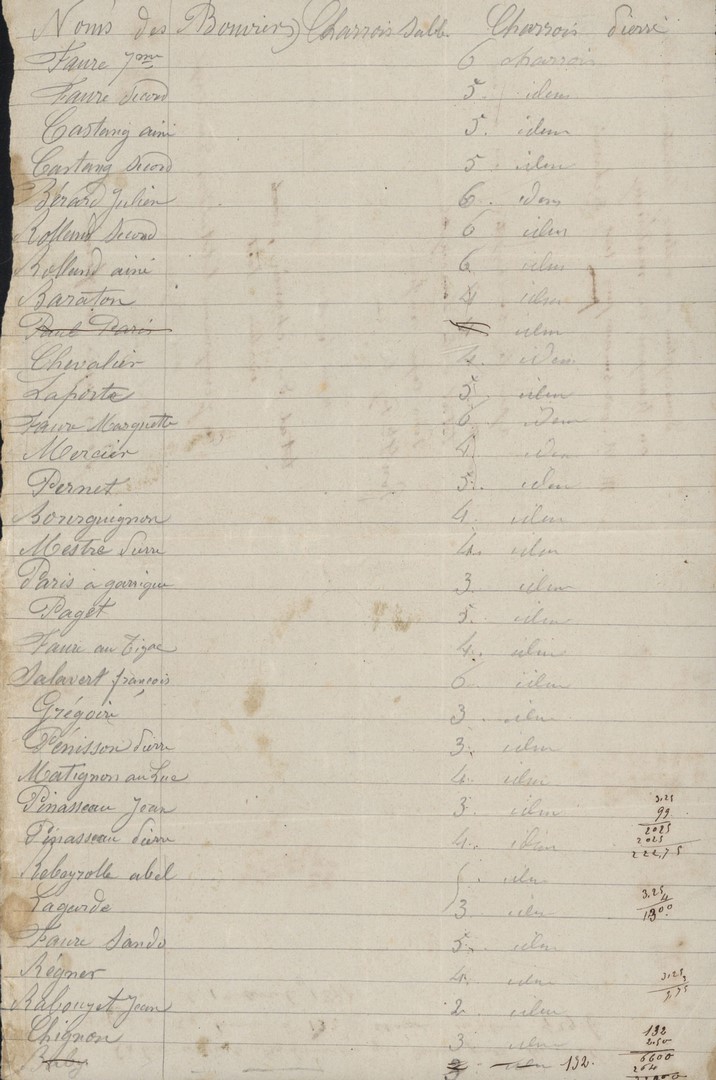 Noms des Bouviers Charrois Sable Charrois Pierre
Faure Jne 6 charrois
Faure Second 5. idem
Castang ainé 5. idem
Castang Second 5 idem
Bérard Julien 6. idem
Rolland Second 6 idem
Rolland ainé 6. idem
Baraton 4 idem
Paul Paris 4 idem
Chevalier 4. idem
Laporte 5. idem
Faure Marguette 6 idem
Mercier 4. idem
Pernet 5. idem
Bourguignon 4. idem
Mestre Pierre 4. idem
Paris à garrigue 3. idem
Paget 5. idem
Faure au Tizac 4. idem
Salavert françois 6 idem
Grégoire 3. idem
Pénisson Pierre 3. idem
Matignon au Luc 4. idem
Pinasseau Jean 3. idem
3,25
99
2025
2025
222,75
Pinasseau Pierre 4. idem
Rebeyrolle abel 5. idem
Lagarde 3. idem
3,25
4
1300
Faure Sando 5. idem
Régner 4. idem
3,25
Rabouyet Jean 2. idem
Chignon 3 idem
132
2.50
6600
264
3 idem 132.